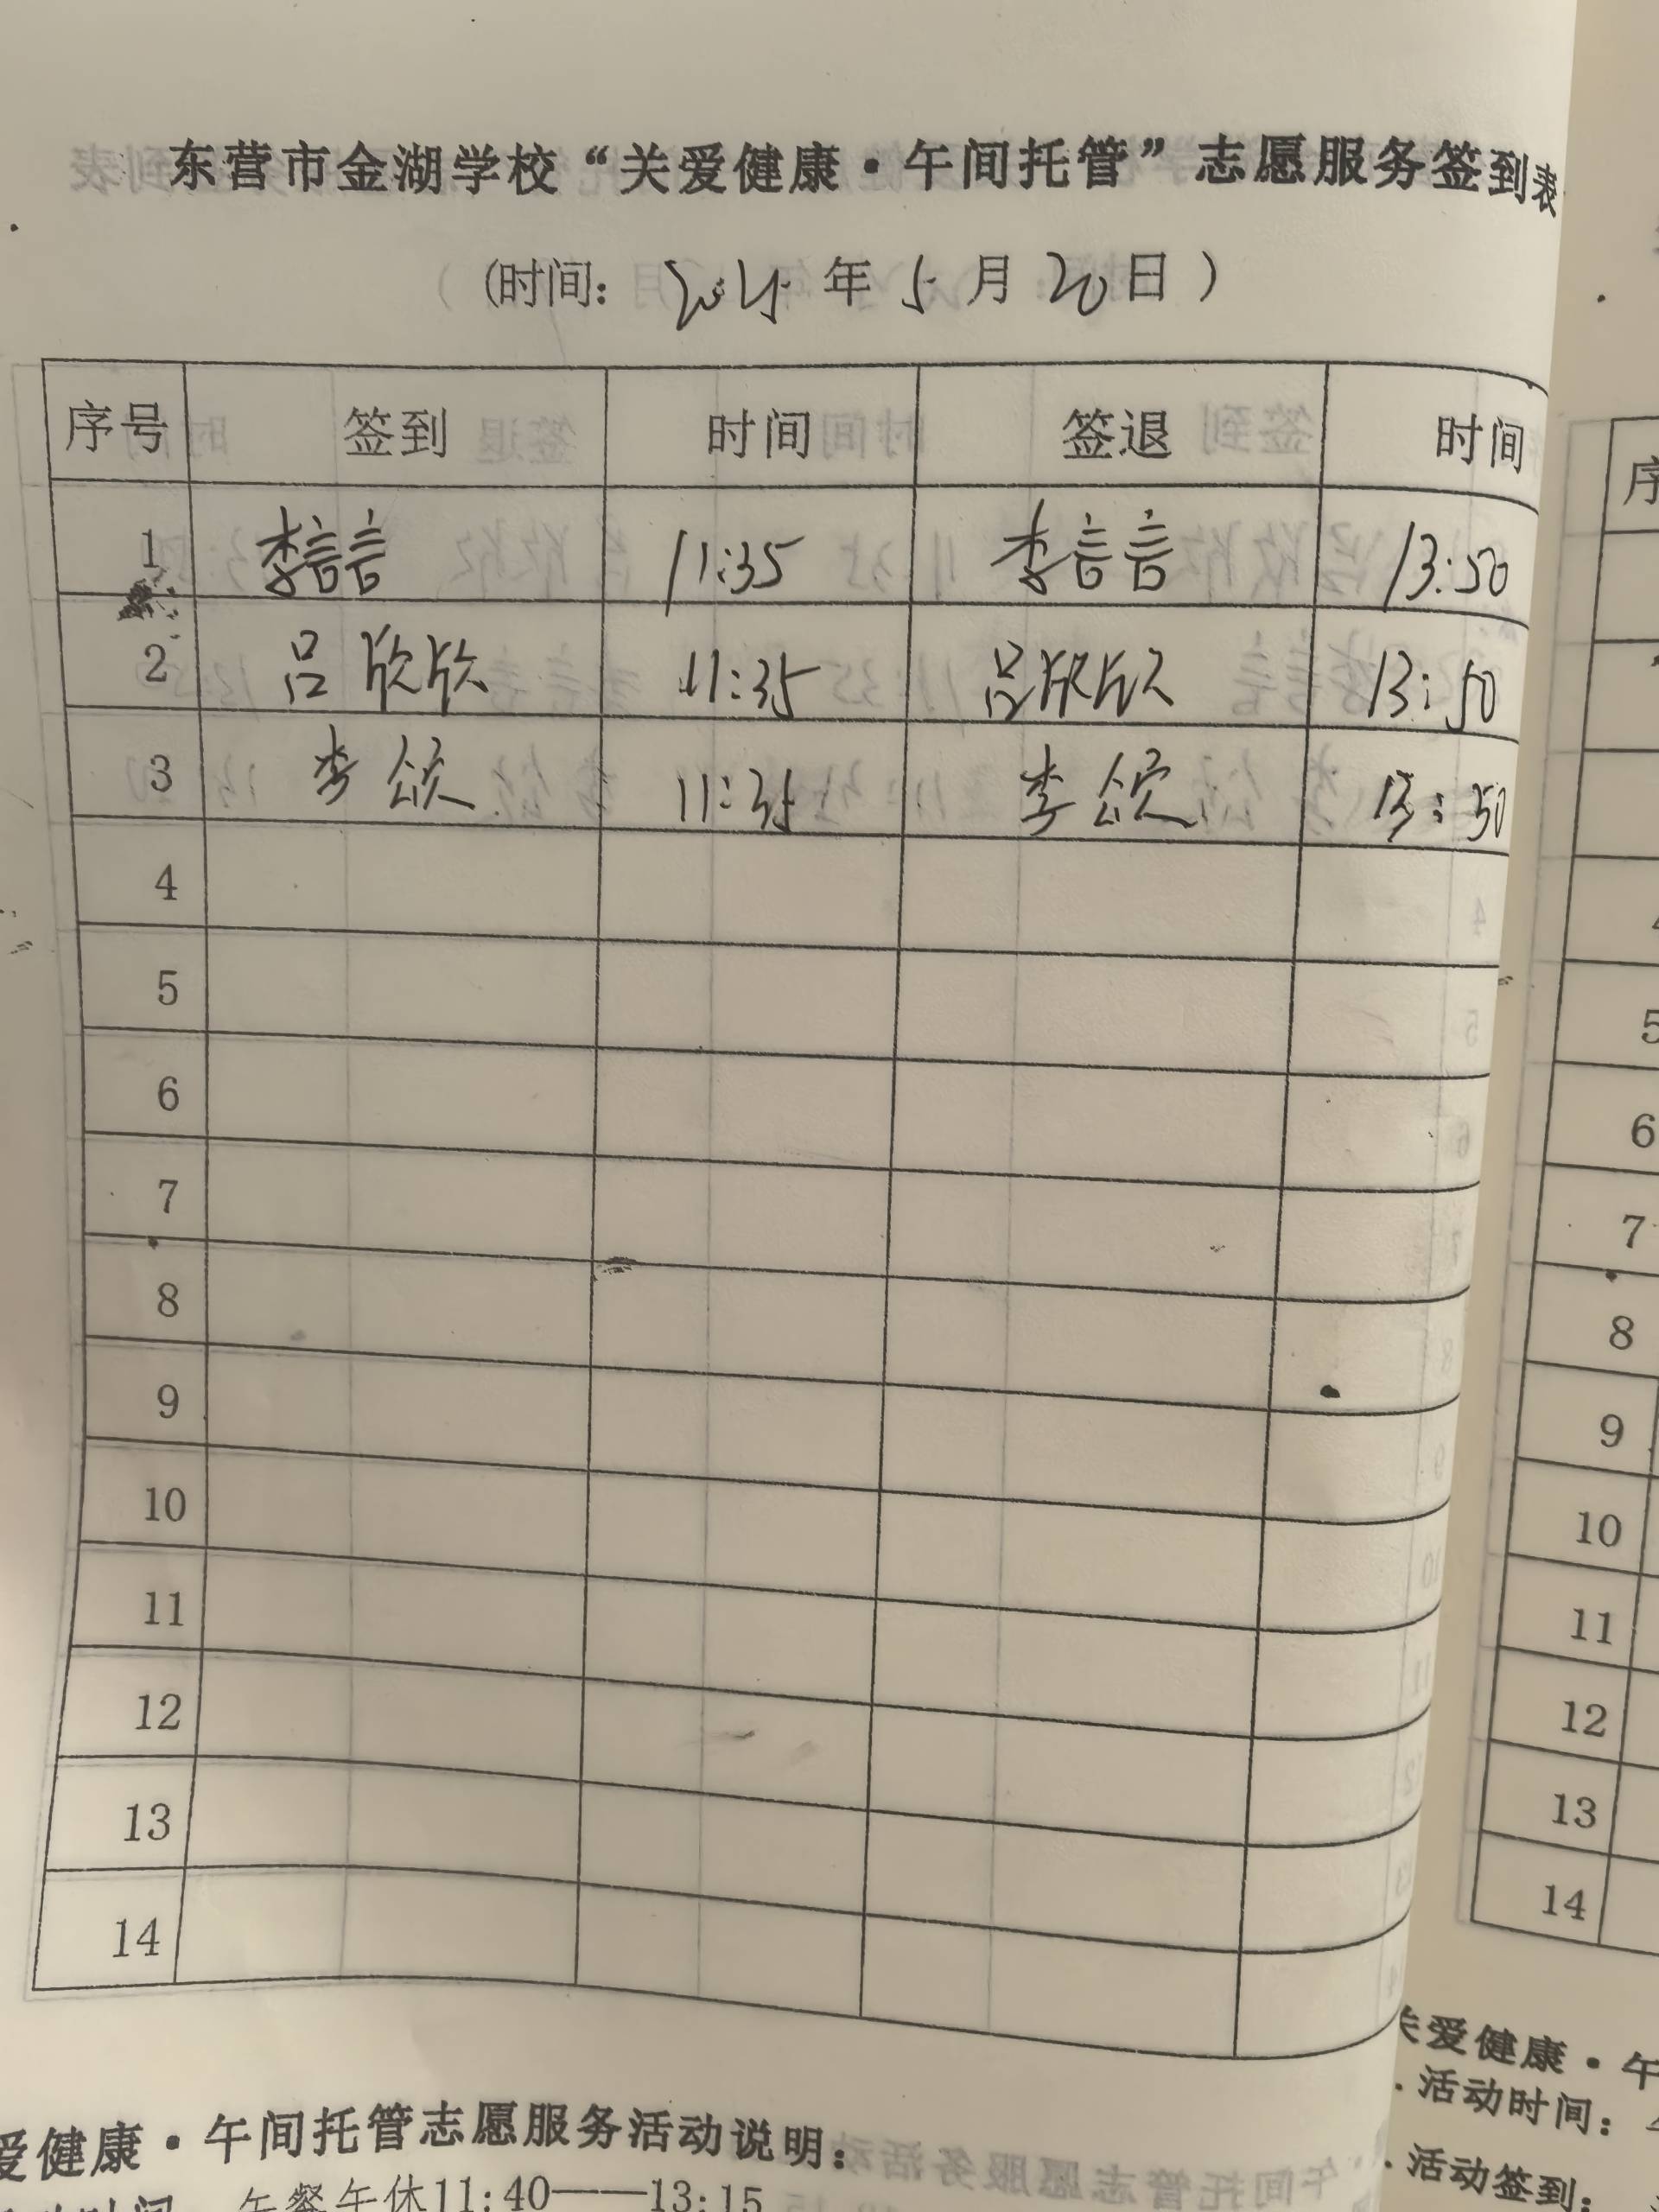 东营市金湖学校“关爱健康·午间托管”志愿服务签到表
(时间: 2025 年 5 月 20 日 )
序号 签到 时间 签退 时间
1 李言言 11:35 李言言 13:50
2 吕欣欣 11:35 吕欣欣 13:50
3 李颂 11:35 李颂 13:50
4
5
6
7
8
9
10
11
12
13
14
爱健康·午间托管志愿服务活动说明:
午餐午休11:40——13:15
序
5
6
7
8
9
10
11
12
13
14
关爱健康·午
活动时间:
活动签到: